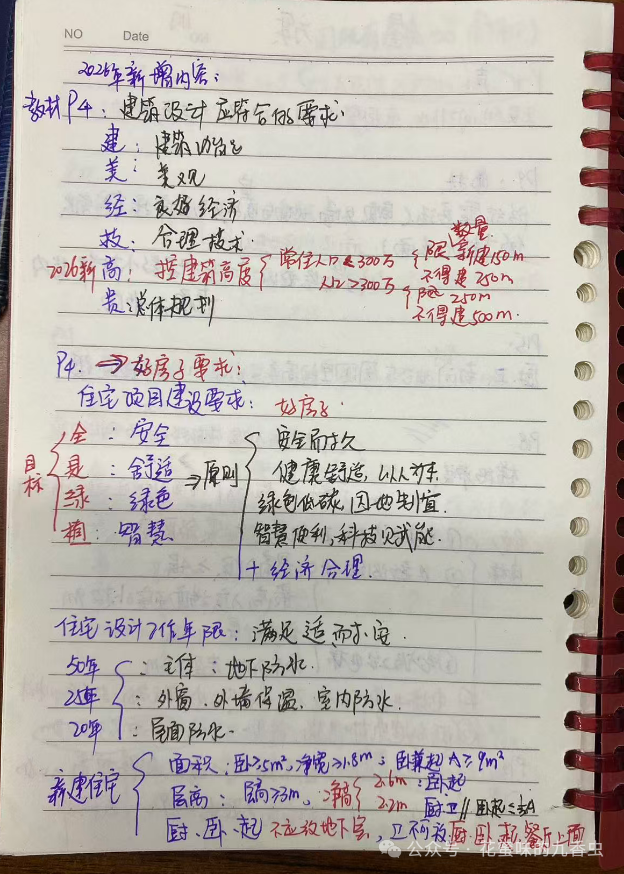 NO Date
2026年新增内容:
教材P4: 建筑设计应符合的要求:
建: 建筑功能
美: 美观
经: 良好经济
技: 合理技术
数量
2026新 高: 控建筑高度 常住人口≤300万 限 新建150m
不得建250m
人口>300万 限 250m
不得建500m.
贵: 总体规划
P4. → 好房子要求:
住宅项目建设要求: 好房子.
目标 全: 安全 ⇒原则 安全耐久
是: 舒适 健康舒适, 以人为本.
绿: 绿色 绿色低碳, 因地制宜.
植: 智慧 智慧便利, 科技赋能.
+ 经济合理.
住宅设计工作年限: 满足适、耐、安.
50年: 主体: 地下防水.
25年: 外窗、外墙保温、室内防水.
20年: 屋面防水.
新建住宅 面积: 卧≥5m², 净宽≥1.8m; 卧兼起A≥9m²
层高: 层高≥3m, 净高 2.6m: 卧起
2.2m 厨卫 // 卧起≤⅓A
厨、卧、起 不应放地下室, 卫不放厨、卧、起、餐厅上面
公众号·花蜜味的九香虫